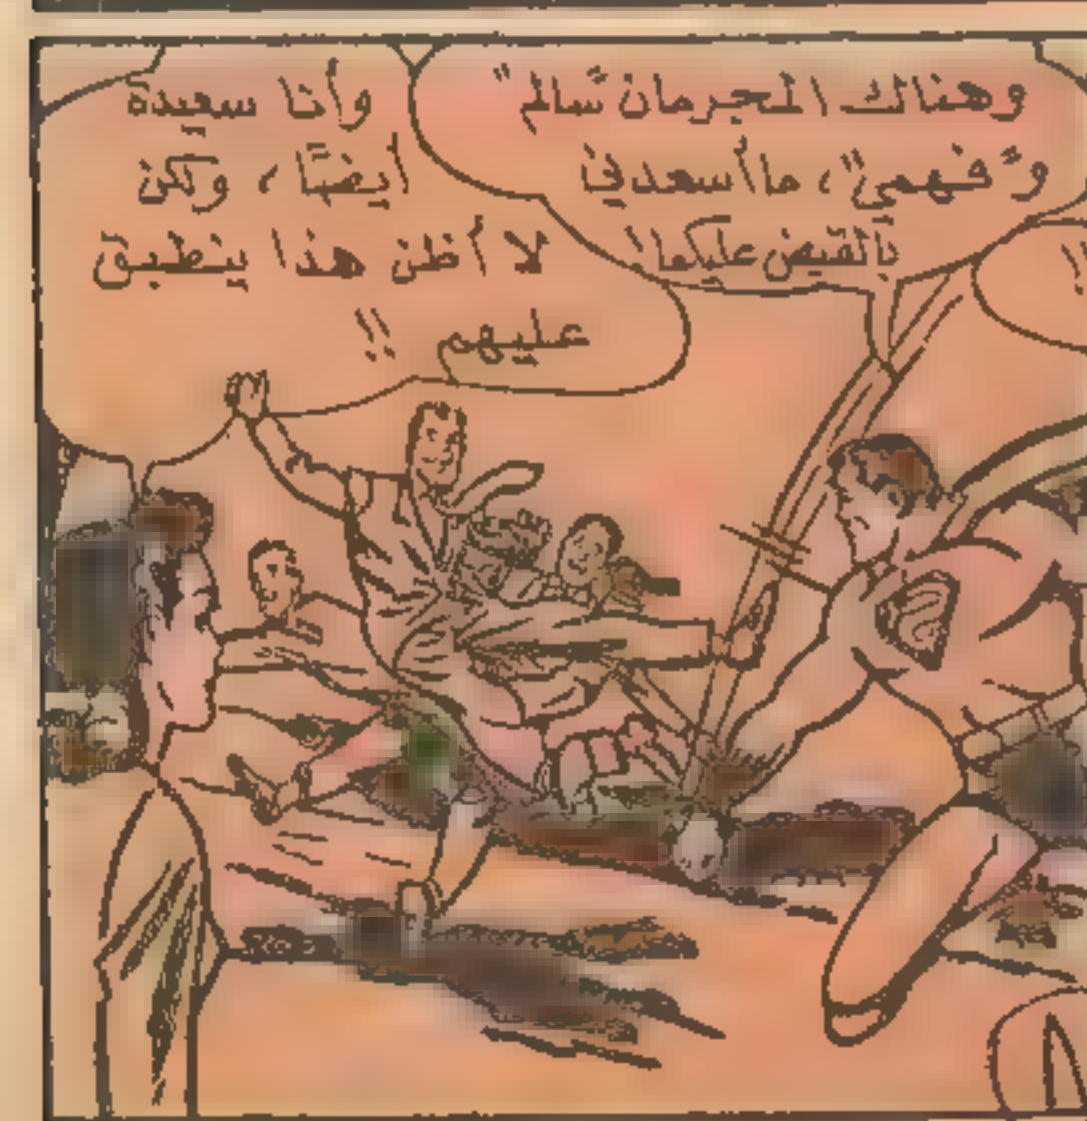 وهناك المجرمان "سالم"
و"فهمي"، ما أسعدني
بالقبض عليكما!
وأنا سعيدة
أيضًا، ولكن
لا أظن هذا ينطبق
عليهم !!
!!